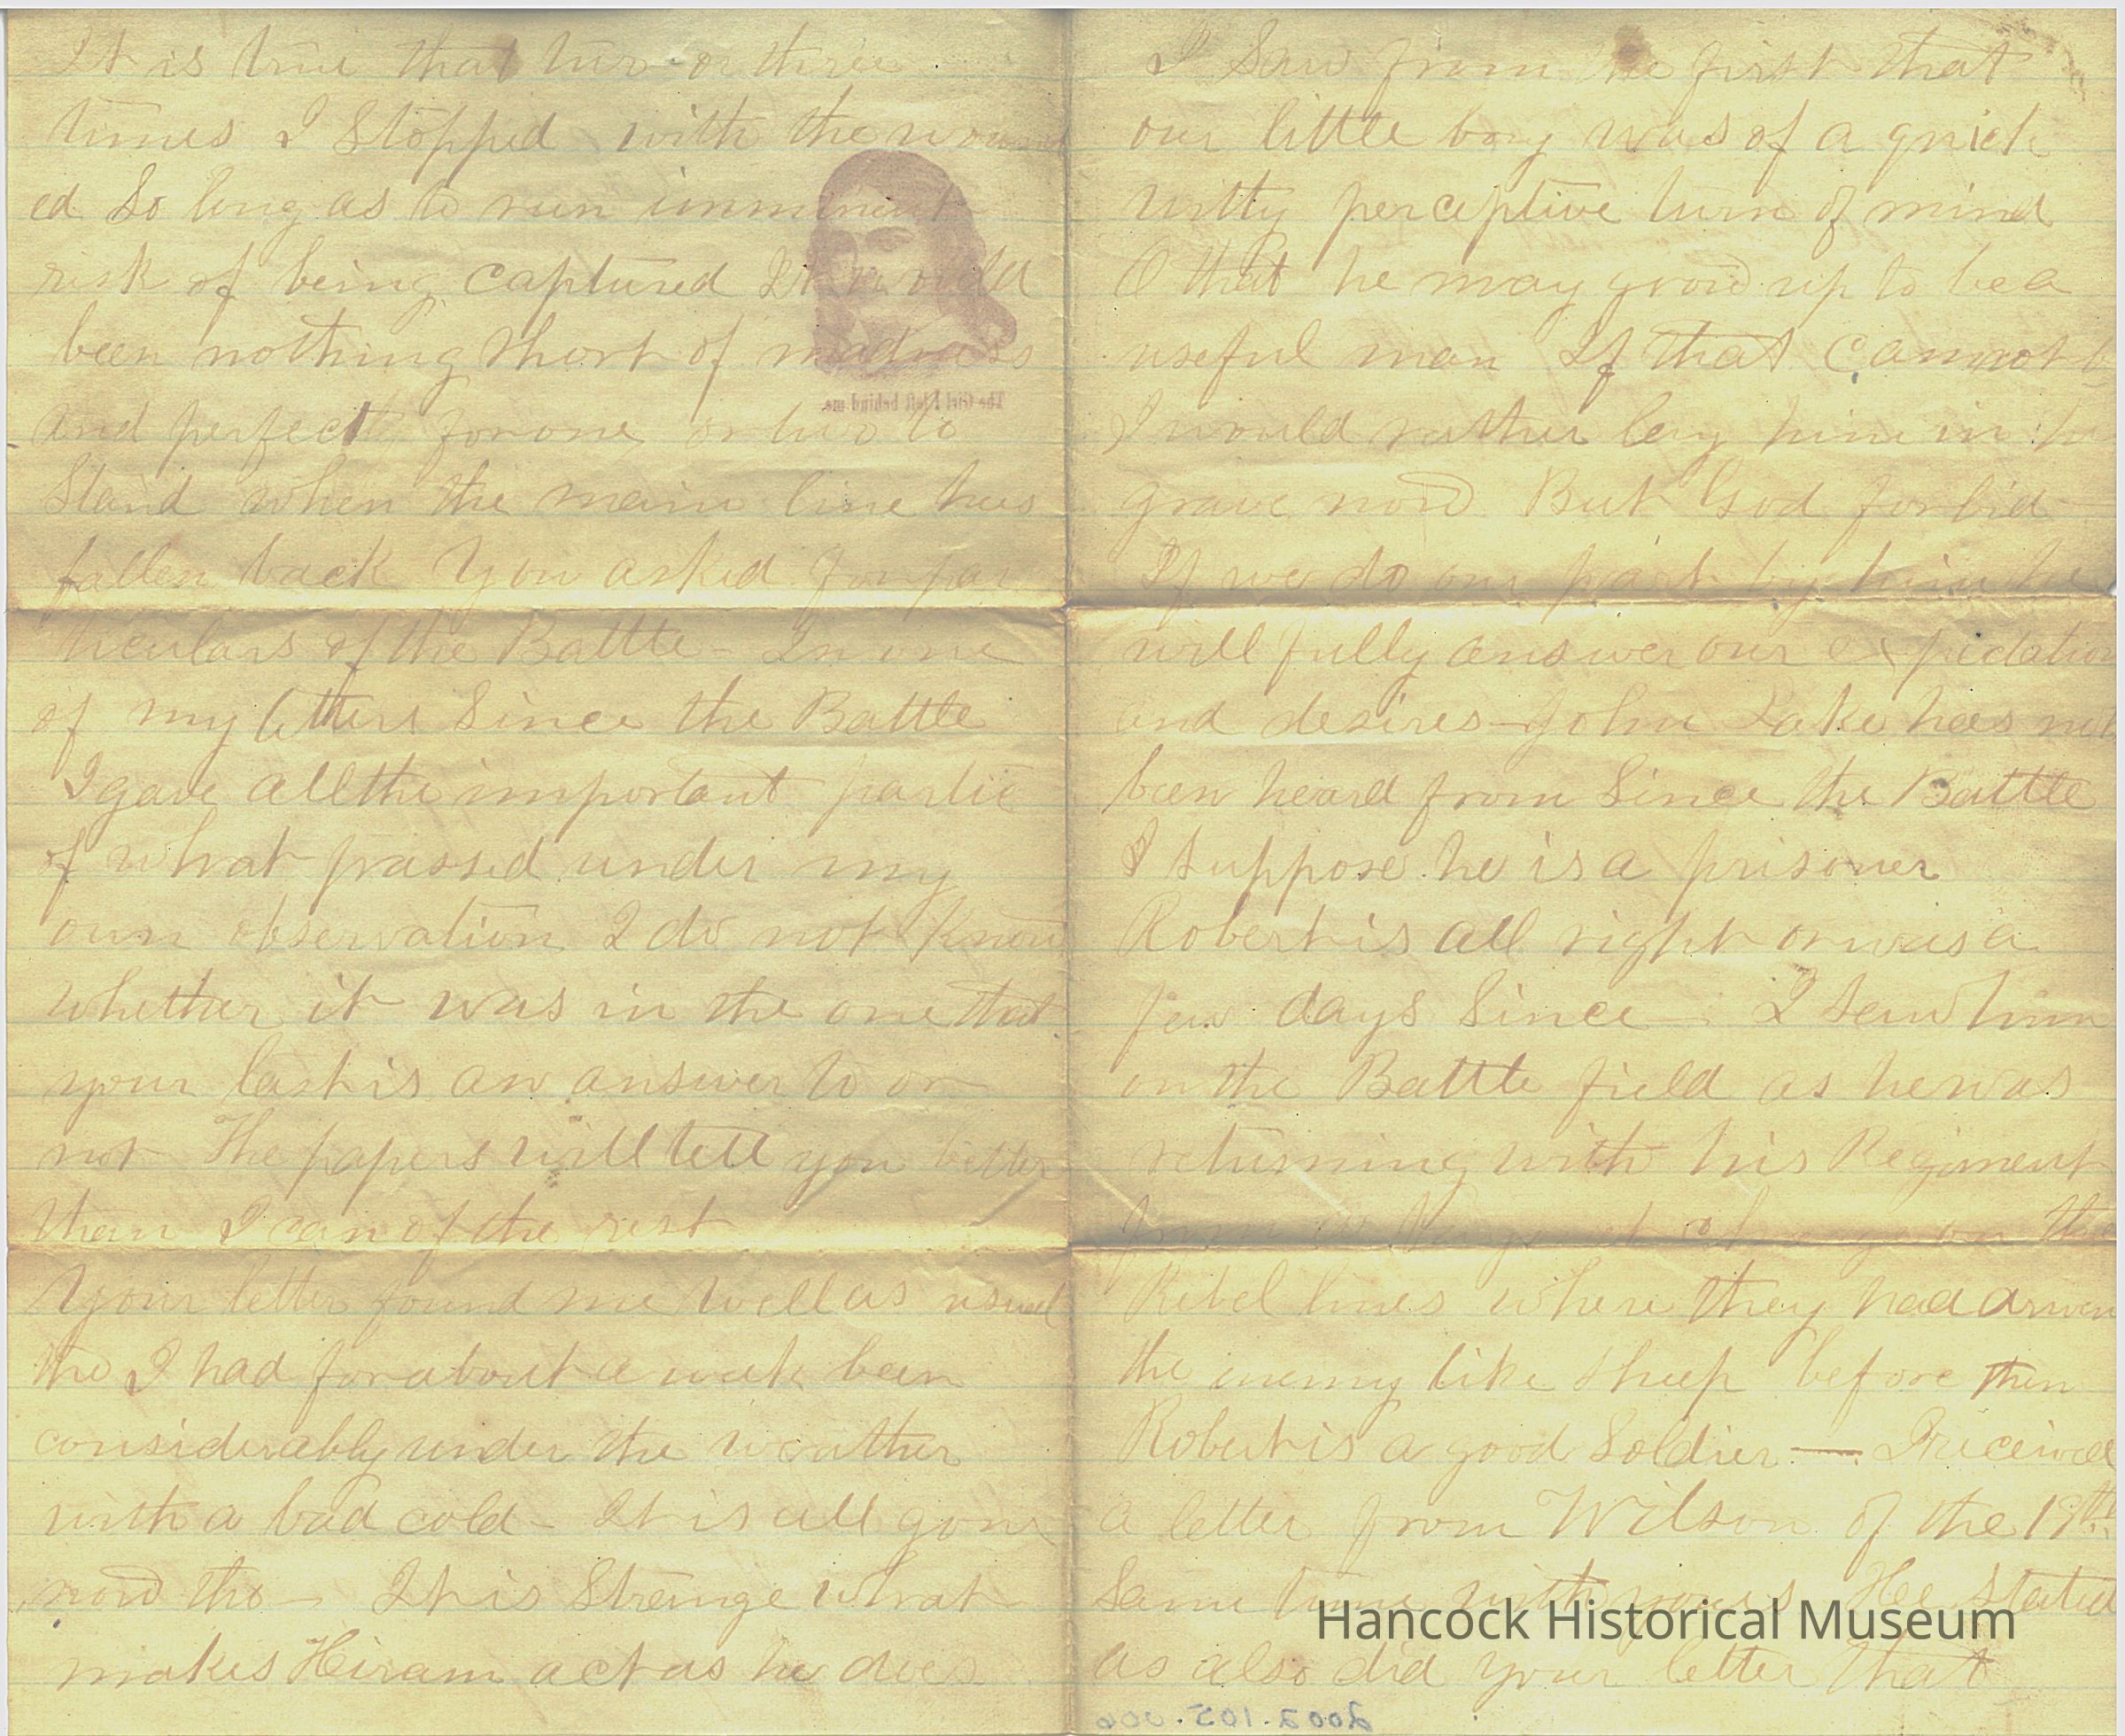 It is true that two or three
times I Stopped with the wound
ed So long as to run imminent
risk of being captured It would
been nothing Short of madness
and perfect for one or two to
Stand when the main line has
fallen back You asked for par
ticulars of the Battle - In one
of my letters Since the Battle
I gave all the important partic
of what passed under my
own observation I do not know
whether it was in the one that
your last is an answer to or
not The papers will tell you better
than I can of the rest
Your letter found me well as usual
tho I had for about a week been
considerably under the weather
with a bad cold - It is all gone
now tho - It is Strange what
makes Hiram act as he does
The Girl I left behind me.
I Saw from the first that
our little boy was of a quick
witty perceptive turn of mind
O that he may grow up to be a
useful man If that cannot b
I would rather lay him in his
grave now But God forbid
If we do our part by him he
will fully answer our expectation
and desires - John Lake has not
been heard from Since the Battle
I suppose he is a prisoner
Robert is all right or was a
few days Since - I saw him
on the Battle field as he was
returning with his Regiment
the
Rebel lines where they had driven
the enemy like sheep before them
Robert is a good Soldier — I received
a letter from Wilson of the 19th
Same time with yours He stated
as also did your letter that
Hancock Historical Museum
2002.105.006